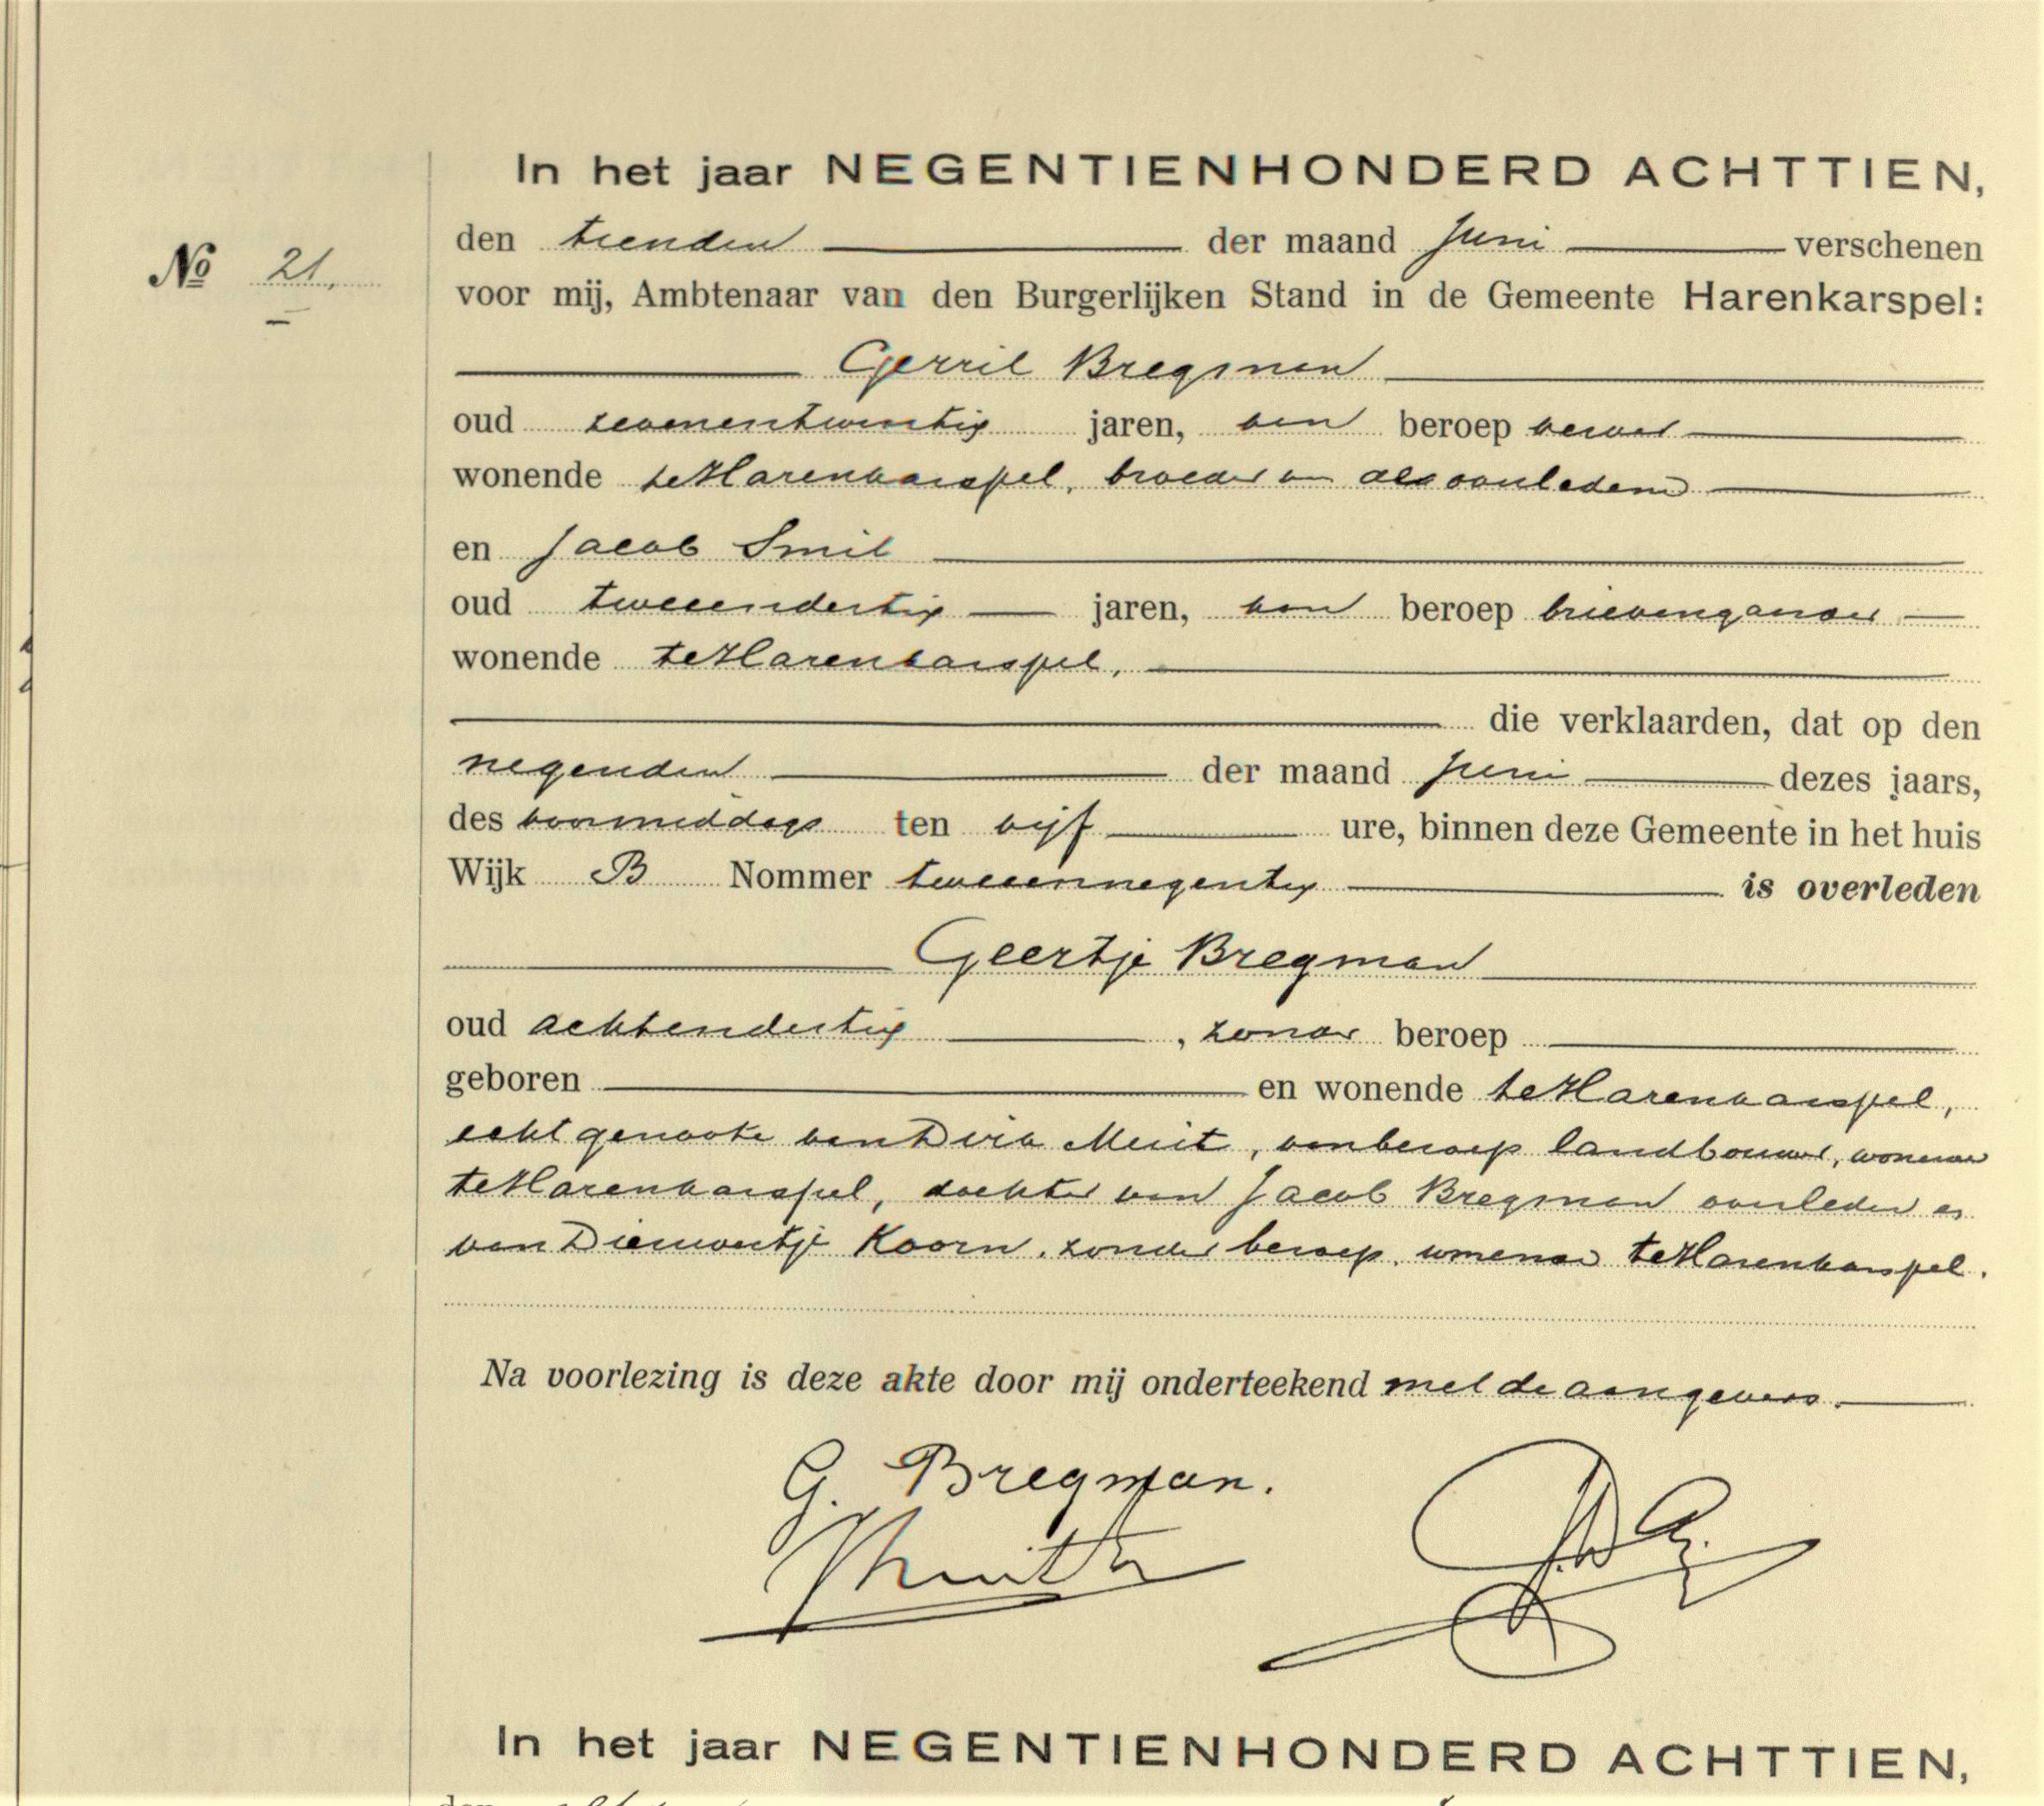 In het jaar NEGENTIENHONDERD ACHTTIEN,
den tienden der maand Juni verschenen
No 21.
voor mij, Ambtenaar van den Burgerlijken Stand in de Gemeente Harenkarspel:
Gerrit Bregman
oud zevenentwintig jaren, van beroep
wonende te Harenkarspel, broeder van de overledene
en Jacob Smit
oud tweeendertig jaren, van beroep brievengaarder
wonende te Harenkarspel,
die verklaarden, dat op den
negenden der maand Juni dezes jaars,
des voormiddags ten vijf ure, binnen deze Gemeente in het huis
Wijk B Nommer tweeennegentig is overleden
Geertje Bregman
oud achtendertig , zonder beroep
geboren en wonende te Harenkarspel,
echtgenoote van Dirk , van beroep landbouwer, wonende
te Harenkarspel, dochter van Jacob Bregman overleden en
van Dieuwertje Koorn, zonder beroep, wonende te Harenkarspel.
Na voorlezing is deze akte door mij onderteekend met de aangevers.
G. Bregman.
In het jaar NEGENTIENHONDERD ACHTTIEN,